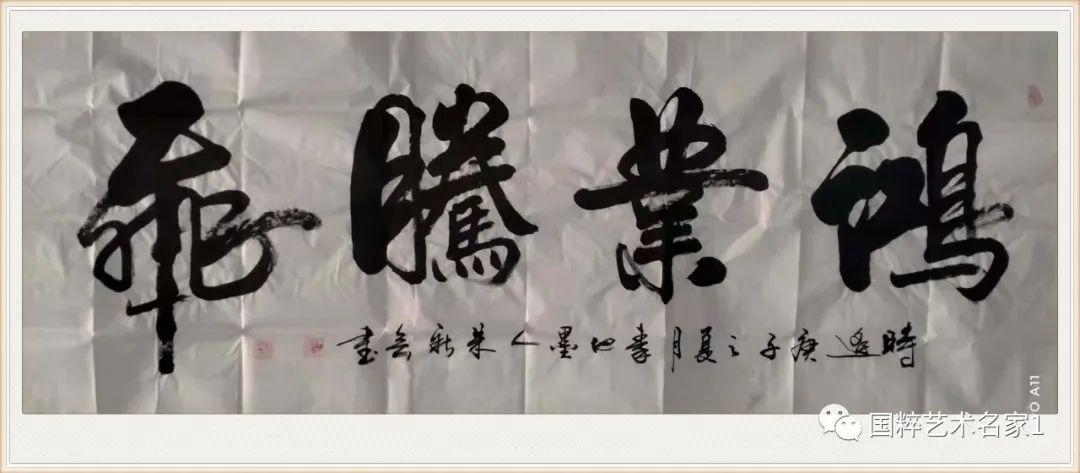 鴻業騰飛
時逢庚子之夏月 墨人朱新 書
O A11
国粹艺术名家1